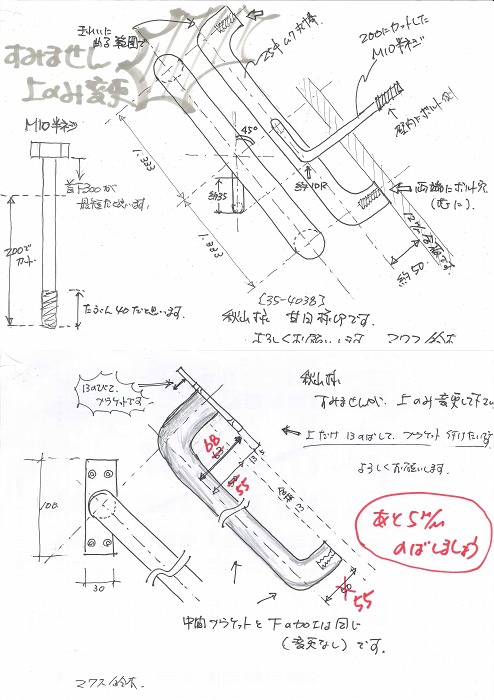 すみません
上のみ変更
きれいに
曲る範囲で
200にカットした
M10半ネジ
M10半ネジ
首下300が
最短だと思います。
200で
カット
たぶん40だと思います。
1.333
1.333
45°
約35
約10R
両端にボルト穴
(芯に)
約50
[35-4038]
秋山様
よろしくお願いします
マワス鈴木
13のびて、
ブラケットです
秋山様
すみませんが、上のみ変更して下さい
上だけ13のばして、ブラケット付けたいです
よろしくお願いします。
68
63
55
100
30
あと5m/m
のばしましょう
50
55
中間ブラケットと下の加工は同じ
(変更なし)です。
マワス鈴木.